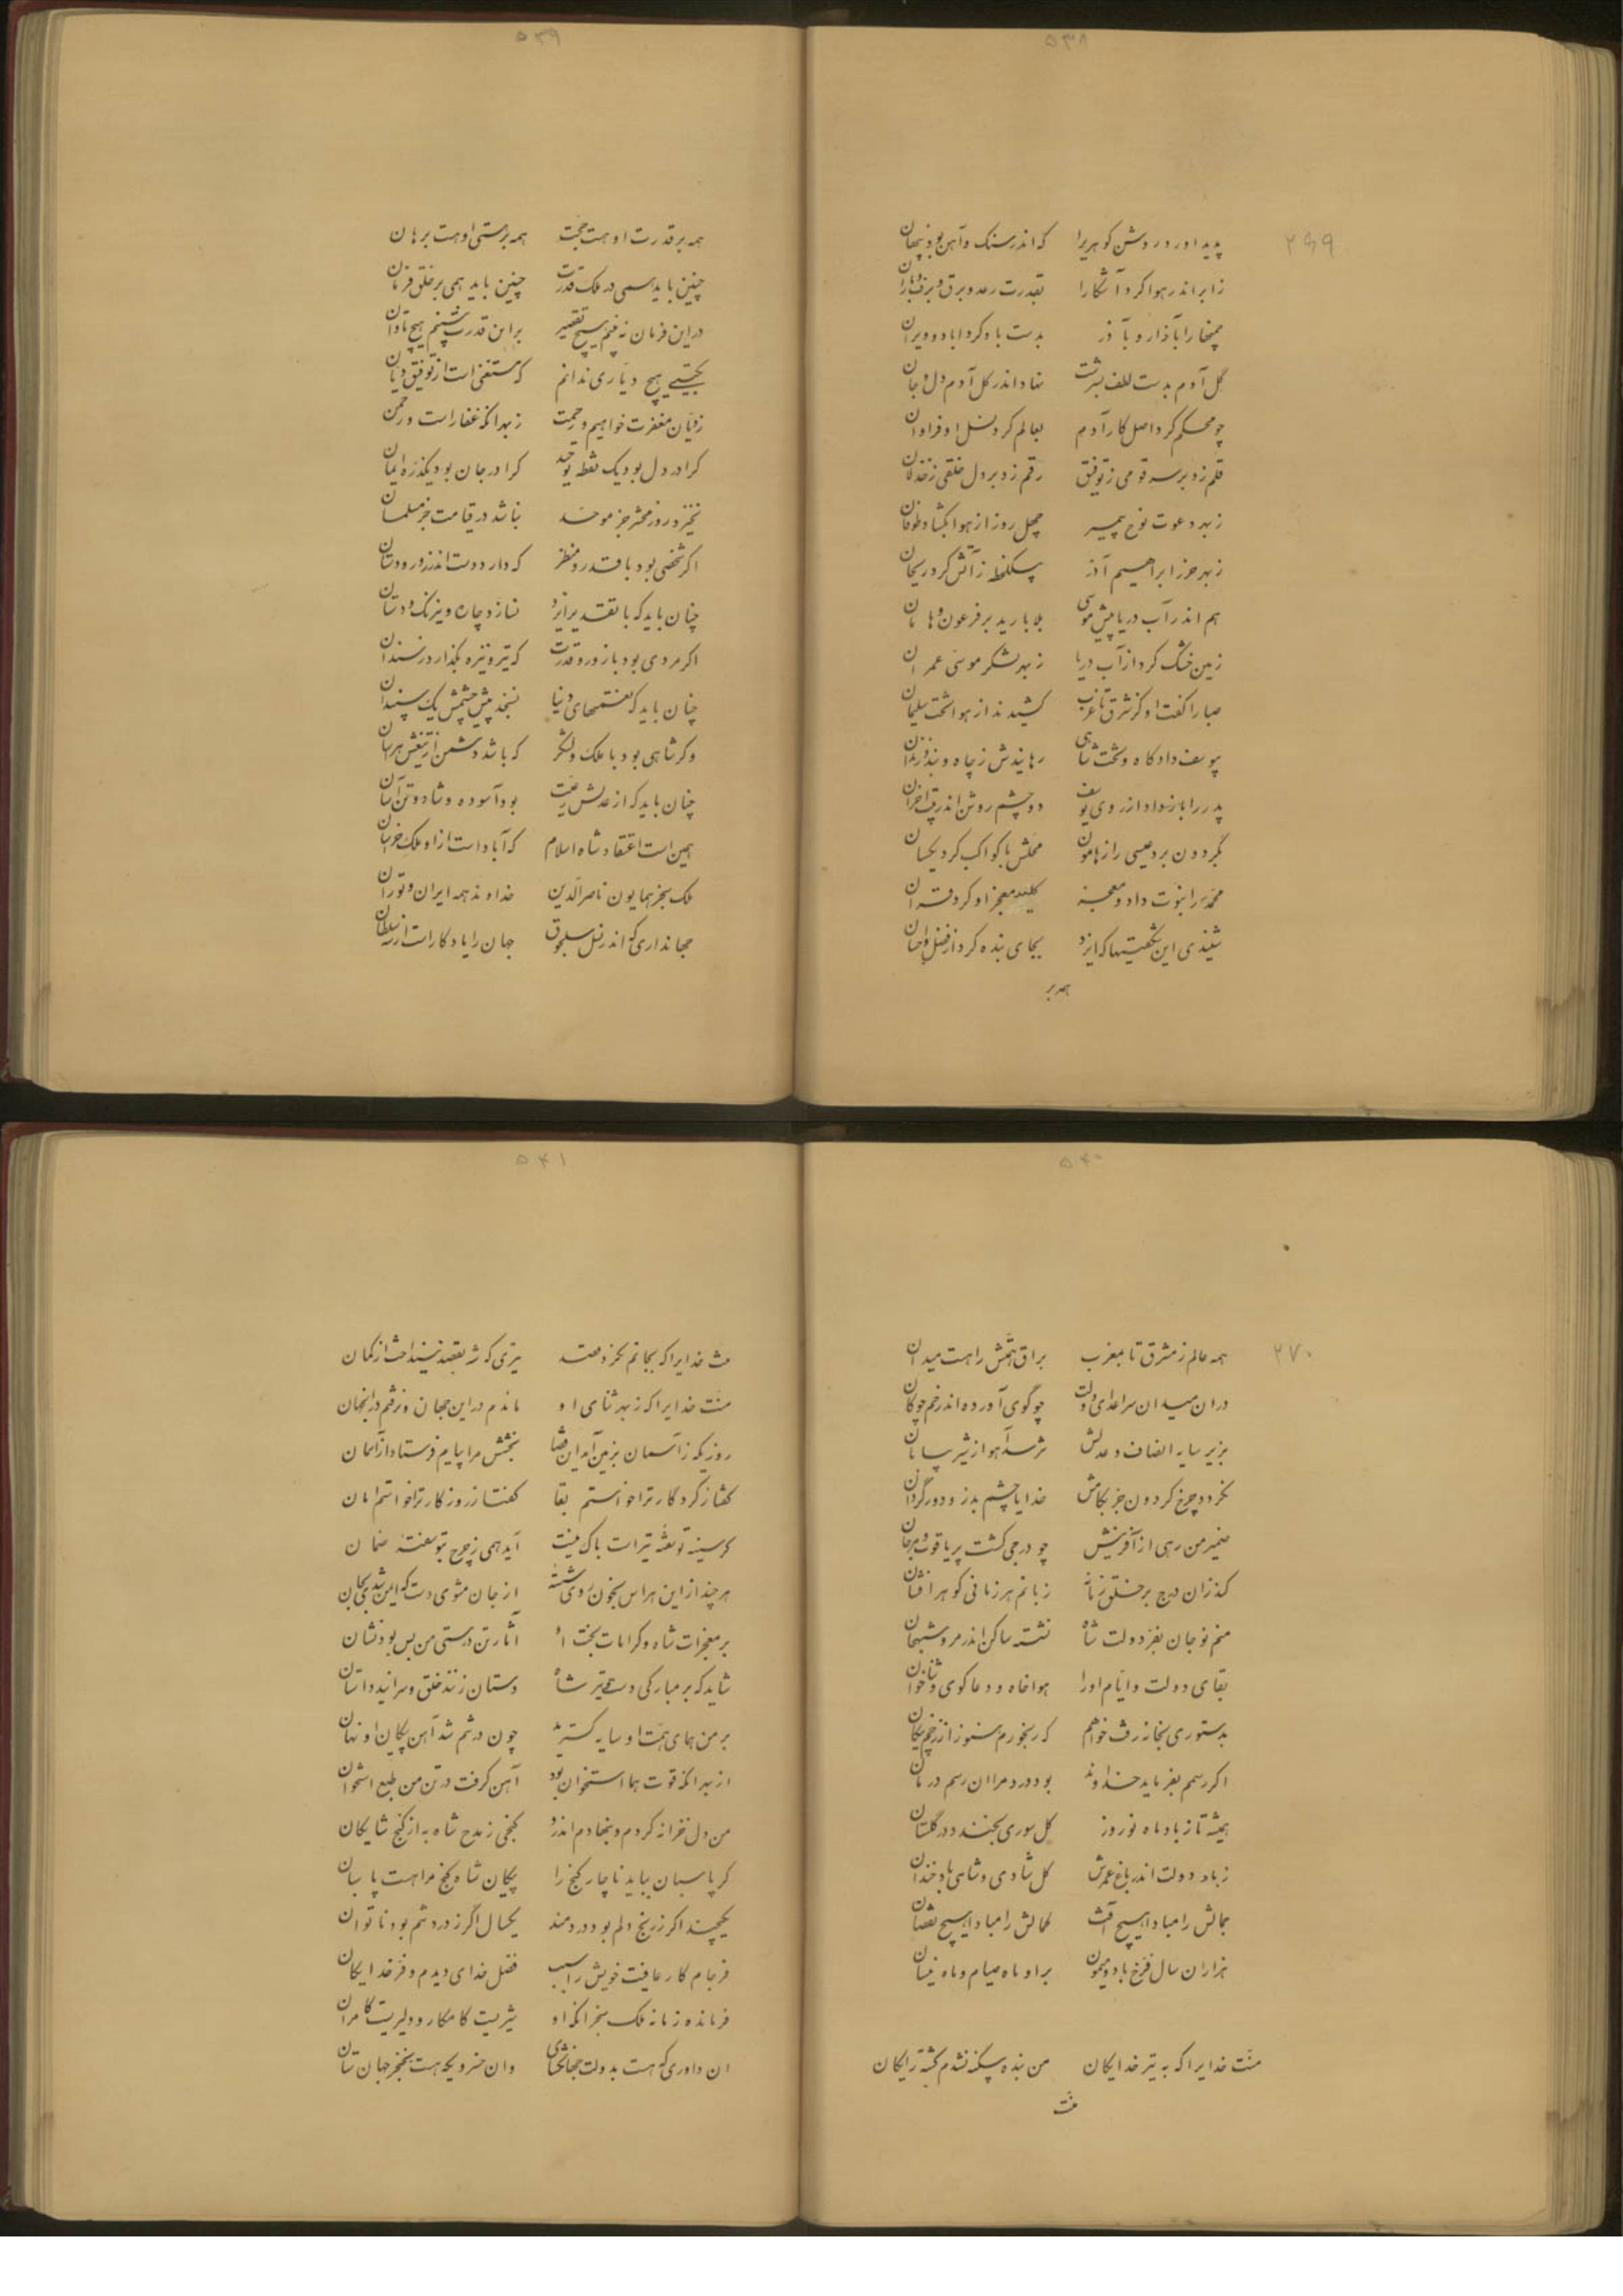 ۵۳۸
۲۶۹
پدید اورد روشن کوهریرا که اندر سنک و آهن بود پنهان
ز ابر اندر هوا کرد آشکارا بقدرت رعد و برق و برف و باران
چمنها را بآذار و بآذر بدست باد کرد اباد و ویران
گل آدم بدست لطف بسرشت نهاد اندر کل آدم دل و جان
چو محکم کرد اصل کار آدم بعالم کرد نسل او فراوان
قلم زد بر سر قومی ز توفیق رقم زد بر دل خلقی ز خذلان
ز بهر دعوت نوح پیمبر چهل روز از هوا بکشاد طوفان
ز بهر حرز ابراهیم آذر بیکلحظه ز آتش کرد ریحان
هم اندر آب دریا پیش موسی بلا بارید بر فرعون و هامان
زمین خشک کرد از آب دریا ز بهر لشکر موسی عمران
صبا را کفت او کز شرق تا غرب کشیدند از هوا تخت سلیمان
بیوسف داد کاه و تخت شاهی رهانیدش ز چاه و بند و زندان
پدر را باز داد از روی یوسف دو چشم روشن اندر بیت احزان
بگردون برد عیسی را ز هامون محلش با کواکب کرد یکسان
محمد را نبوت داد و معجز کلید معجز او کرد قران
شنیدی این شگفتیها که ایزد بجای بنده کرد از فضل و احسان
همه بر
۵۳۹
همه بر قدرت او هست حجت همه بر هستی او هست برهان
چنین باید همی در ملک قدرت چنین باید همی بر خلق فرمان
در این فرمان نه بینم هیچ تقصیر بر این قدرت نبینم هیچ تاوان
بگیتی هیچ دیاری ندانم که مستغنی است از توفیق دیان
ز دیان مغفرت خواهیم و رحمت ز بهر انکه غفار است و رحمن
کرا در دل بود یک نقطه توحید کرا در جان بود یکذره ایمان
نخیزد روز محشر جز موحد نباشد در قیامت جز مسلمان
اکر شخصی بود با قدر و منظر که دارد دست اندر زور دستان
چنان باید که با تقدیر ایزد نسازد چاره و نیرنک و دستان
اکر مردی بود با زور و قدرت که تیر و نیزه بگذارد ز سندان
چنان باید که نعمتهای دنیا نسنجد پیش چشمش یک سپندان
وکر شاهی بود با ملک و لشکر که باشد دشمن از تیغش هراسان
چنان باید که از عدلش رعیت بود آسوده و شاد و تن آسان
همین است اعتقاد شاه اسلام که آباد است از او ملک خراسان
ملک سنجر همایون ناصر الدین خداوند همه ایران و توران
جهانداری که اندر نسل سلجوق جهان را یادکار است از سلطان
۵۴۰
۲۷۰
همه عالم ز مشرق تا بمغرب براق همتش را هست میدان
در ان میدان سر اعدای دولت چو گوی آورده اندر خم چوکان
بزیر سایه انصاف و عدلش نترسد آهو از شیر بیابان
نکردد چرخ کردون جز بکامش خدایا چشم بد زو دور گردان
ضمیر من رهی از آفرینش چو درجی کشت پر یاقوت و مرجان
کز ان درج بر خلق زمانه زبانم هر زمانی کوهر افشان
منم نو جان بفر دولت شاه نشسته ساکن اندر مرو شهجان
بقای دولت و ایام او را هواخاه و دعا کوی و ثناخوان
بدستوری بخانه رفت خواهم که رنجورم هنوز از زخم پیکان
اکر رسمم بفرماید خداوند بود درد مرا ان رسم درمان
همیشه تا ز باد ماه نوروز کل سوری بخندد در گلستان
ز باد دولت اندر باغ عمرش کل شادی و شاهی باد خندان
جمالش را مبادا هیچ آفت کمالش را مبادا هیچ نقصان
هزاران سال فرخ باد و میمون بر او ماه صیام و ماه نیسان
منت خدایرا که به تیر خدایکان من بنده بیکنه نشدم کشته رایکان
منت
۵۴۱
منت خدایرا که بجانم نکرد قصد تیری که شه بقصد نینداخت از کمان
منت خدایرا که ز بهر ثنای او ماندم در این جهان و نرفتم در انجهان
روزیکه ز آسمان بزمین آمد این قضا بختش مرا پیام فرستاد از آسمان
کفتا ز کردکار ترا خواستم بقا کفتا ز روزکار ترا خواستم امان
کر سینه تو تشنه تیر است باک نیست آید همی ز چرخ بتو هفته ضمان
هر چند از این هراس بخون روی شسته از جان مشوی دست که ایمن شدی بجان
بر معجزات شاه و کرامات بخت او آثار تندرستی من بس بود نشان
شاید که بر مبارکی دست و تیر شاه دستان زنند خلق و سرایند داستان
بر من همای همت او سایه کسترید چون در تنم شد آهن پیکان او نهان
از بهر انکه قوت هما استخوان بود آهن گرفت در تن من طبع استخوان
من دل خزانه کردم و بنهادم اندرو کنجی ز مدح شاه به از کنج شایکان
کر پاسبان بباید ناچار کنج را پیکان شاه کنج مرا هست پاسبان
یکچند اکر ز رنج دلم بود دردمند یکسال اگر ز درد تنم بود ناتوان
فرجام کار عافیت خویش را سبب فضل خدای دیدم و فر خدایکان
فرمانده زمانه ملک سنجر انکه او شیریست کامکار و دلیریست کامران
ان داوری که هست بدولت جهانکشای وان خسرویکه هست بخنجر جهان ستان